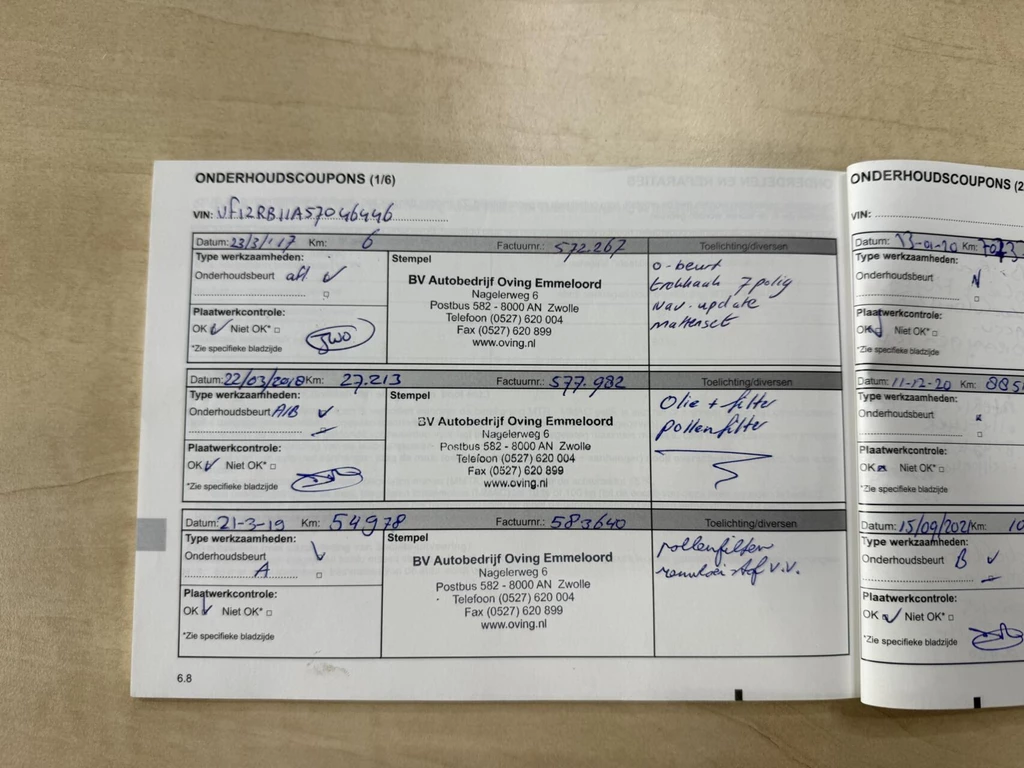 ONDERHOUDSCOUPONS (1/6)
VIN: VF12RB11A57046446
Datum: 23/3/'17 Km: 6 Factuurnr.: 572.267 Toelichting/diversen
Type werkzaamheden:
Onderhoudsbeurt afl
Plaatwerkcontrole:
OK Niet OK*
*Zie specifieke bladzijde
Stempel
BV Autobedrijf Oving Emmeloord
Nagelerweg 6
Postbus 582 - 8000 AN Zwolle
Telefoon (0527) 620 004
Fax (0527) 620 899
www.oving.nl
0-beurt
trekhaak 7 polig
nav. update
mattenset
Datum: 22/03/2018 Km: 27.213 Factuurnr.: 577.982 Toelichting/diversen
Type werkzaamheden:
Onderhoudsbeurt A/B
Plaatwerkcontrole:
OK Niet OK*
*Zie specifieke bladzijde
Stempel
BV Autobedrijf Oving Emmeloord
Nagelerweg 6
Postbus 582 - 8000 AN Zwolle
Telefoon (0527) 620 004
Fax (0527) 620 899
www.oving.nl
Olie + filter
pollenfilter
Datum: 21-3-19 Km: 54978 Factuurnr.: 583640 Toelichting/diversen
Type werkzaamheden:
Onderhoudsbeurt
A
Plaatwerkcontrole:
OK Niet OK*
*Zie specifieke bladzijde
Stempel
BV Autobedrijf Oving Emmeloord
Nagelerweg 6
Postbus 582 - 8000 AN Zwolle
Telefoon (0527) 620 004
Fax (0527) 620 899
www.oving.nl
pollenfilter
v.v.
6.8
ONDERHOUDSCOUPONS (2
VIN:
Datum: 13-01-20 Km:
Type werkzaamheden:
Onderhoudsbeurt
Plaatwerkcontrole:
OK Niet OK*
*Zie specifieke bladzijde
Datum: 11-12-20 Km: 885
Type werkzaamheden:
Onderhoudsbeurt
Plaatwerkcontrole:
OK Niet OK*
*Zie specifieke bladzijde
Datum: 15/09/2021 Km: 10
Type werkzaamheden:
Onderhoudsbeurt B
Plaatwerkcontrole:
OK Niet OK*
*Zie specifieke bladzijde